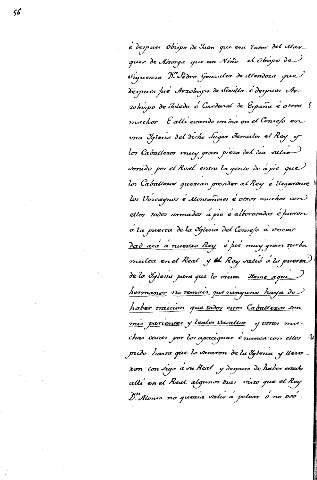 56
é despues Obispo de Jaen que era Tutor del Mar-
ques de Moya que era Niño el Obispo de
Siguenza Dn. Pedro Gonzalez de Mendoza que
despues fué Arzobispo de Sevilla é despues Ar-
zobispo de Toledo é Cardenal de España é otros
muchos. E alli estando un dia en el Consejo en
una Iglesia del dicho Lugar Fernando el Rey y
los Caballeros muy gran pieza del dia salio
sonido por el Real entre la gente de á pie que
los Caballeros querian prender al Rey é llegaronse
los Vizcaynos é Montañeses é otros muchos con
ellos todos armados á pie é alborozados é fueron
á la puerta de la Iglesia del Consejo á
dad acá á nuestro Rey é fué muy gran turba
multa en el Real y el Rey salió á la puerta
de la Iglesia para que lo viesen
hermanos no temais que ninguno haya de
haber traicion que todos estos Caballeros son
mis parientes y leales vasallos y otras mu-
chas cosas por los apaciguar é nunca con ellos
pudo hasta que lo sacaron de la Iglesia y lleva-
ron con sigo á su Real y despues de haber estado
alli en el Real algunos dias visto que el Rey
Dn. Alonso no queria salir á pelear ó no osó